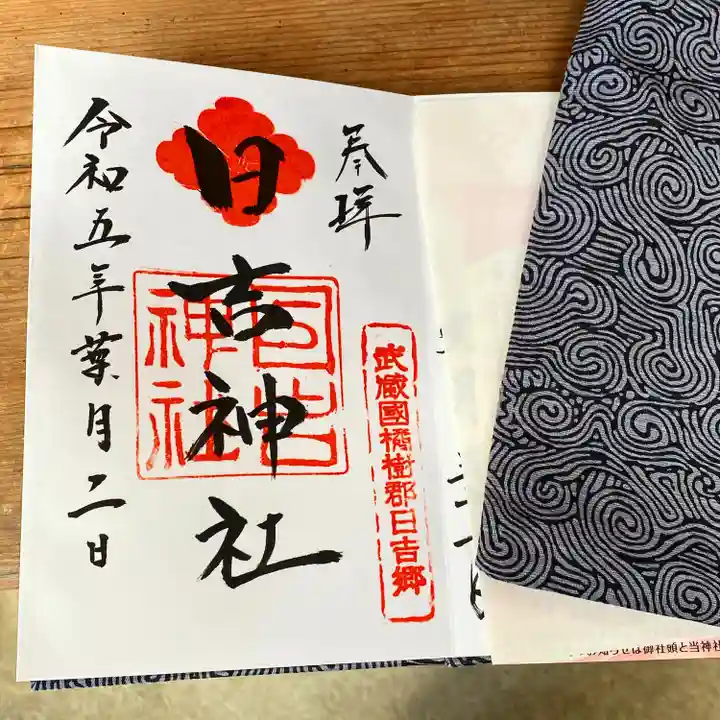 奉拝
武蔵國橘樹郡日吉郷
日吉神社
日吉
神社
令和五年葉月二日
お知らせは御社頭と当神社